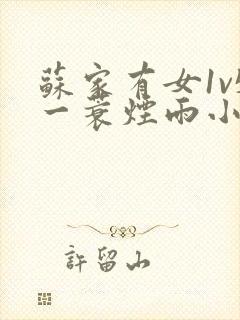 蘇家有女1v
一蓑煙雨小
許留山